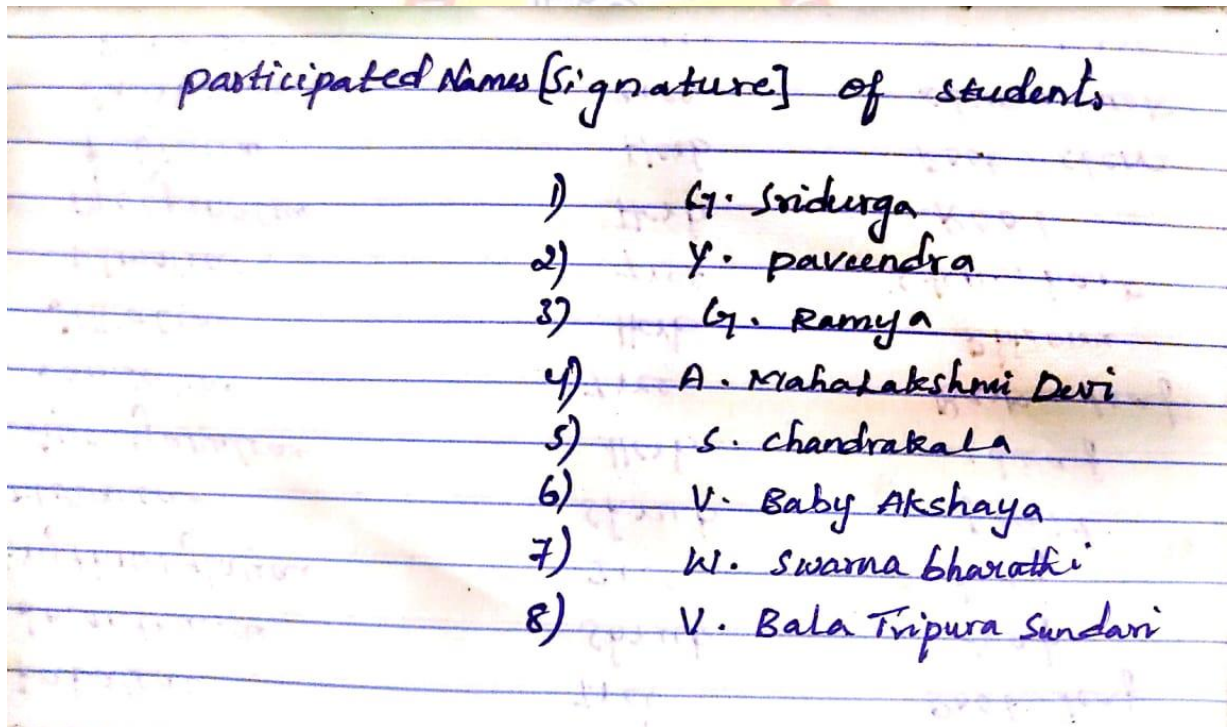 participated Names [Signature] of students
1) G. Sridurga
2) Y. paveendra
3) G. Ramya
4) A. MahaLakshmi Devi
5) S. chandrakala
6) V. Baby Akshaya
7) W. Swarna bharathi
8) V. Bala Tripura Sundari